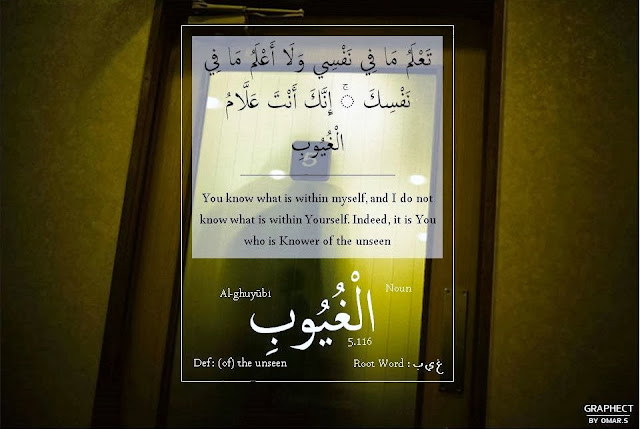 تَعْلَمُ مَا فِي نَفْسِي وَلَا أَعْلَمُ مَا فِي
نَفْسِكَ ۚ إِنَّكَ أَنْتَ عَلَّامُ
الْغُيُوبِ
You know what is within myself, and I do not
know what is within Yourself. Indeed, it is You
who is Knower of the unseen
Al-ghuyūbi
Noun
الْغُيُوبِ
5.116
Def: (of) the unseen
Root Word : غ ي ب
GRAPHECT
BY OMAR.S